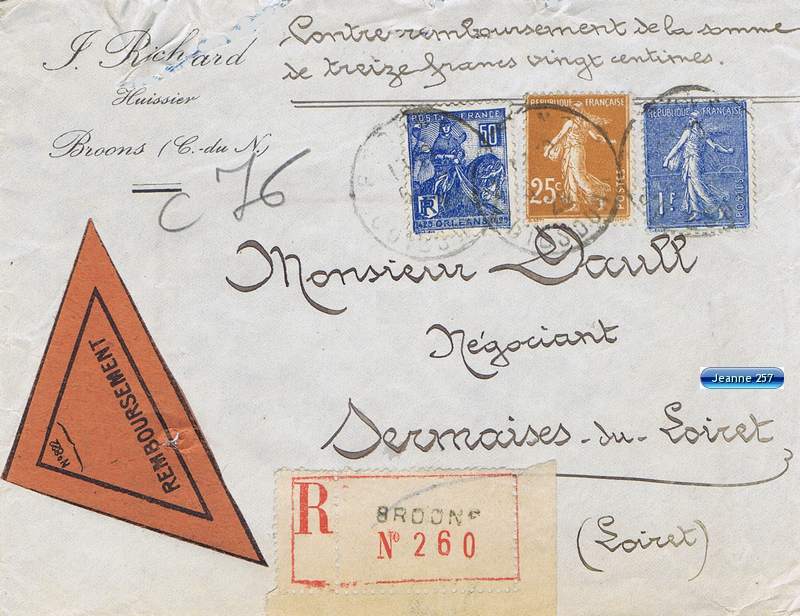 J. Richard
Huissier
Broons (C.-du N.)
Contre remboursement de la somme
de treize francs vingt centimes.
C 76
POSTES FRANCE
50c
RF
1429 ORLEANS 1929
REPUBLIQUE FRANÇAISE
25c
POSTES
REPUBLIQUE FRANÇAISE
1F
POSTES
Monsieur Dault
Négociant
Jeanne 257
Sermaises-du-Loiret
(Loiret)
REMBOURSEMENT
N° 892
R
BROONS
N° 260